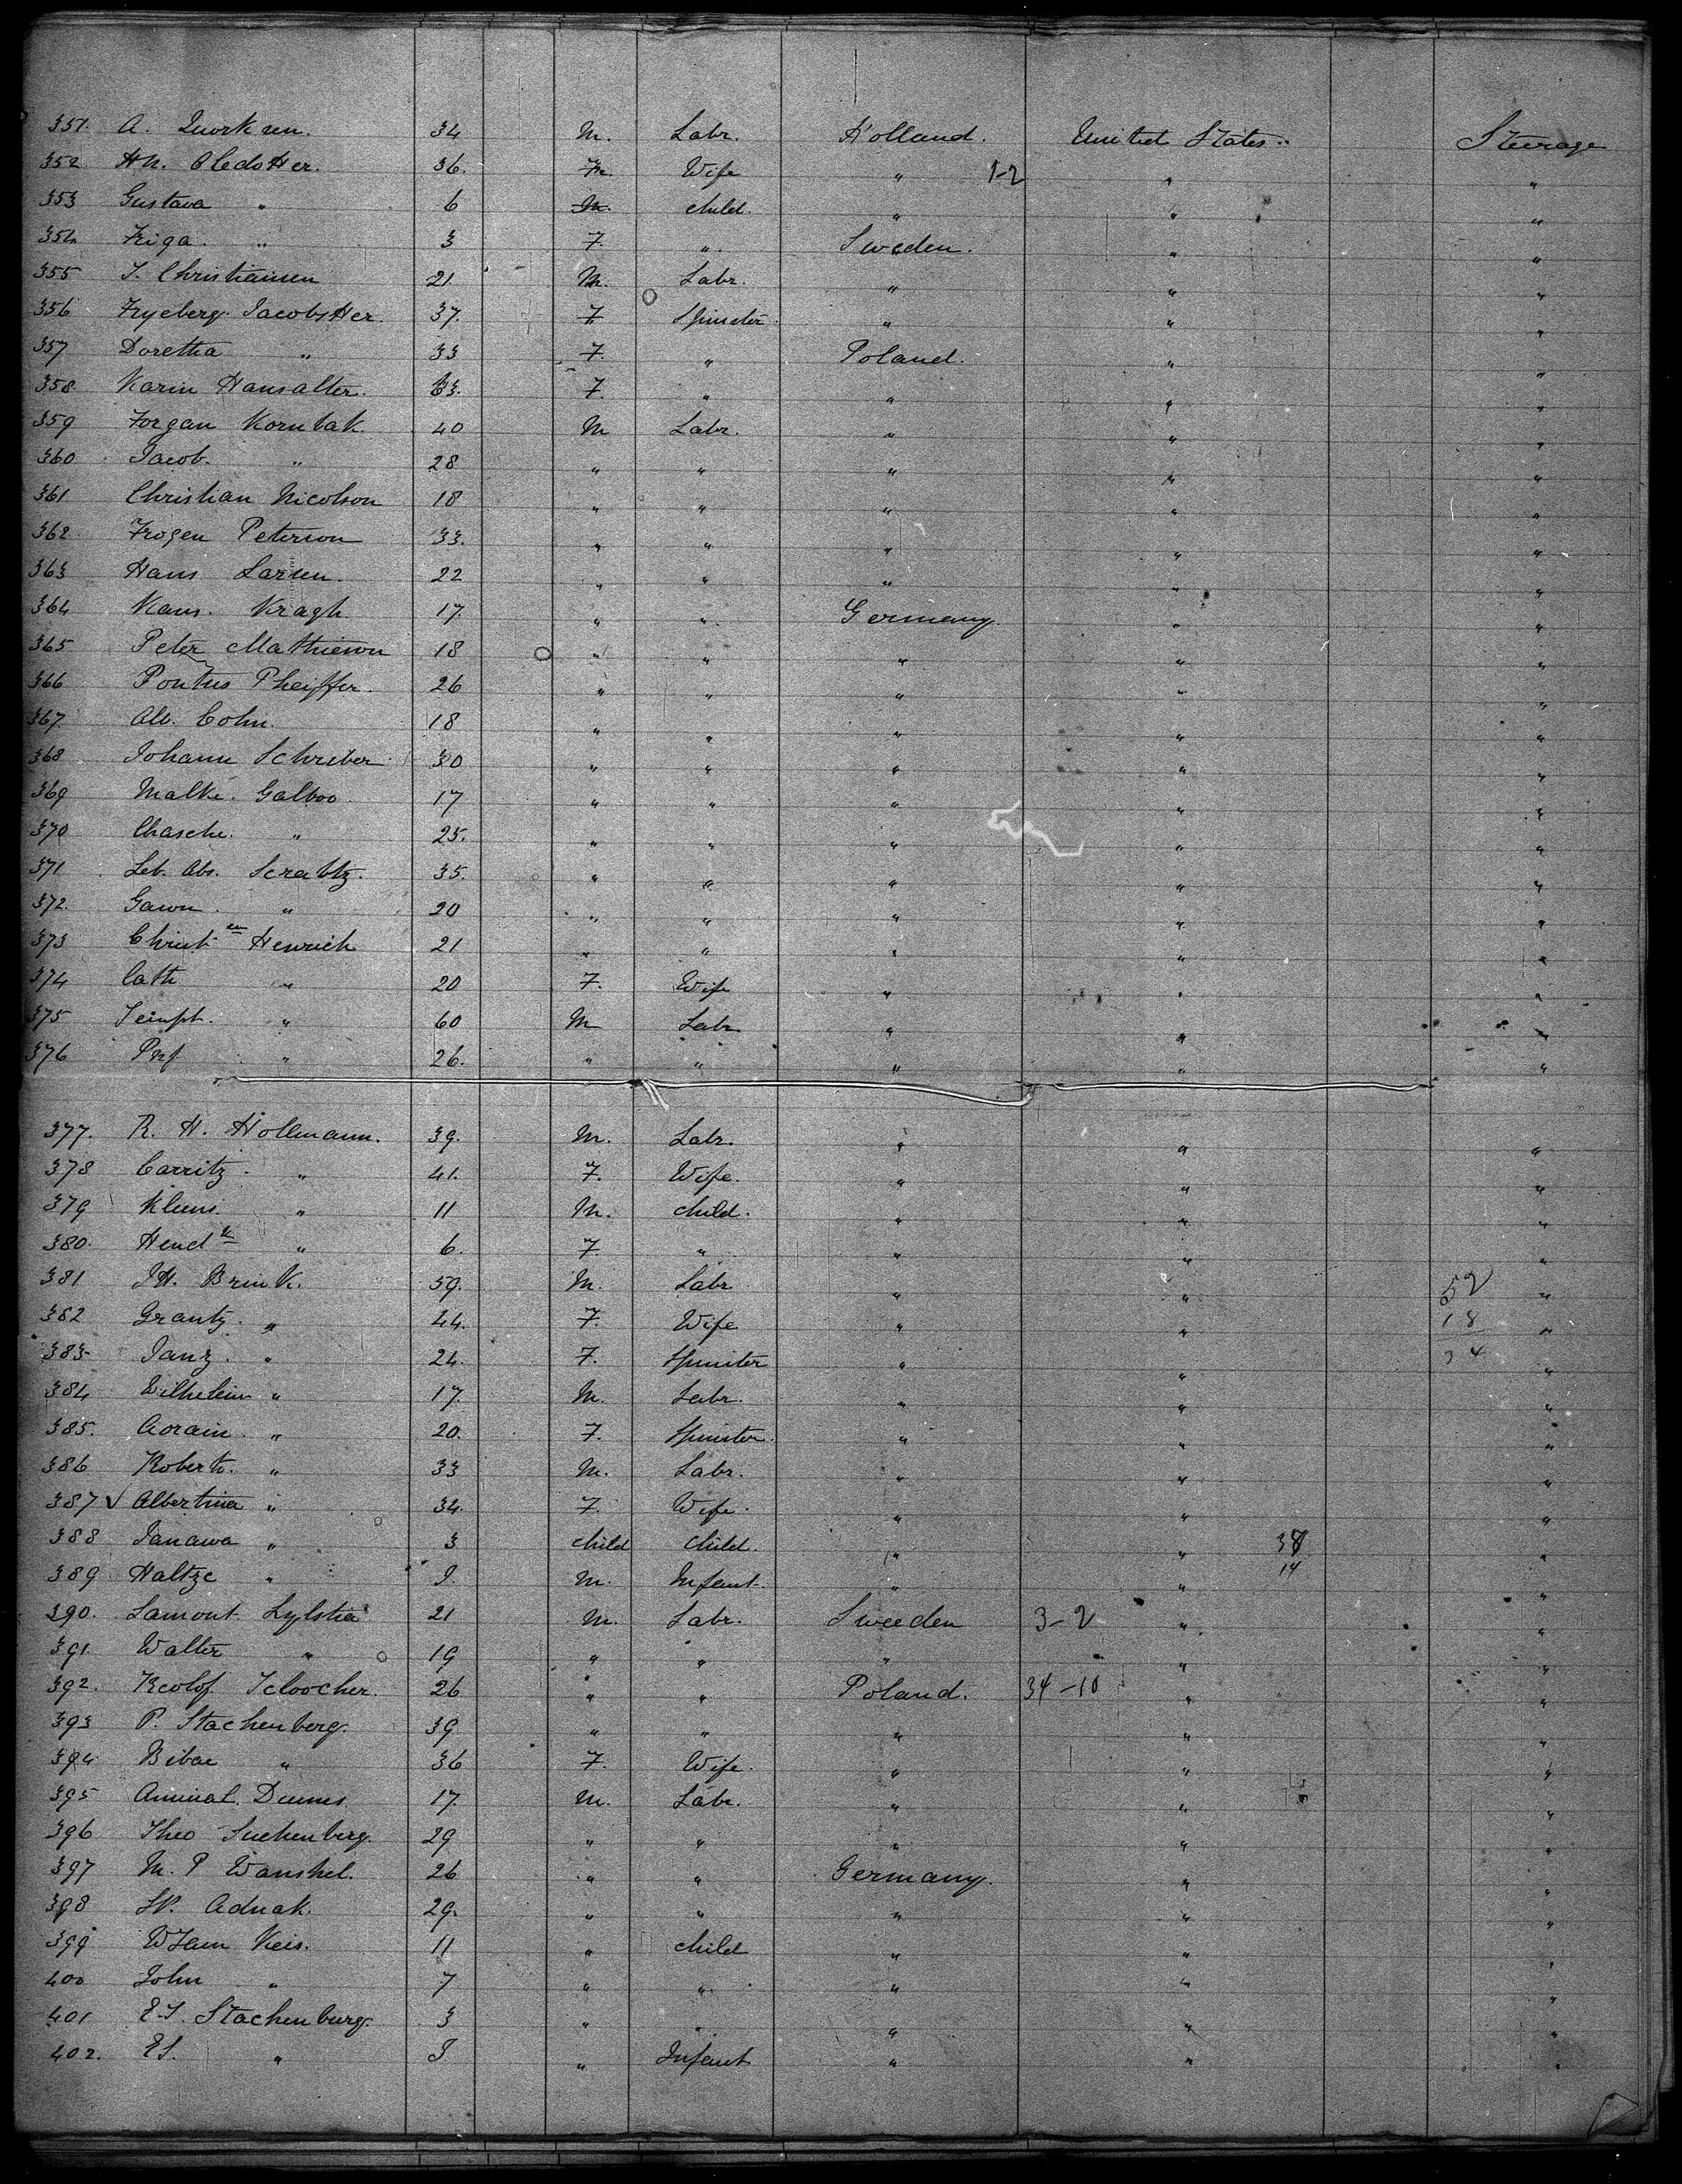 351. A. Quorknen. 34 M. Labr. Holland. United States.. Steerage
352 Hn. OledotHer. 36. F. Wife " 1-2 " "
353 Gustava " 6 M. child. " " "
354 Friga. " 3 F. ". Sweden. " "
355 J. Christiansen 21. M. Labr. " " "
356 Fryeberg. JacobstHer. 37. F Spinster. " " "
357 Doretha " 33 F. " Poland. " "
358. Karin Hansalter. 63. F. " " " "
359 Forgan Kornbak. 40 M Labr. " " "
360 Jacob. " 28 " " " " "
361 Christian Nicolson 18 " " " " "
362. Frogen Peterson 33. " " " " "
363 Hans Larsen. 22 " " " " "
364 Kans. Kragh. 17. " ". Germany. " "
365 Peter Mathieson 18 " " " " "
366 Pontus Pheiffer. 26 " " " " "
367. Alb. Cohn. 18 " " " " "
368 Johann Schreiber. 30 " " " " "
369 Malke. Galboo. 17 " " " " "
370 Chasche. " 25. " " " " "
371 Leb. Abs. Scrabtz. 35. " " " " "
372. Gawn. " 20 " " " " "
373 Christ en Henrich 21 " " " " "
374 Cath " 20 F. Wife " " "
375 " 60 M Labr " " "
376 " 26. " " " " "
377. R. H. Hollmann. 39. M. Labr. " " "
378 Carritz. " 41. F. Wife. " " "
379 Kleins. " 11 M. child. " " "
380. Hend k " 6. F. " " " "
381 JH. Brink. 59. M. Labr " " 52 "
382 Grantz. " 44. F. Wife " " 18 "
383- Janz. " 24. F. Spinster " " 34 "
384 Wilhelim " 17. M. Labr. " " "
385. Aorain. " 20. F. Spinster. " " "
386 Roberto. " 33 M. Labr. " " "
387 √ Albertina " 34. F. Wife. " " "
388 Janawa " 3 child Child. " " 38 "
389 Haltze " I. M. Infant. " " 14 "
390. Lamont Lylstia 21 M. Labr. Sweeden 3-2 " "
391. Walter " 19 " " " " "
392. Reolof. Icloocher. 26 " " Poland. 34-10 " "
393 P. Stachenberg. 39 " " " " "
394. Bibae " 36 F. Wife. " " "
395 Aminal. Dumes. 17. M. Labr. " " "
396 Theo Suchenberg. 29 " " " " "
397 M. P Wanshel. 26 " " Germany. " "
398 St. Adnak. 29. " " " " "
399 WJam Keis. 11 " child " " "
400 John " 7 " ". " " "
401 E.S. Stachenburg. 3 " " " " "
402. ES. " I " Infant " " "